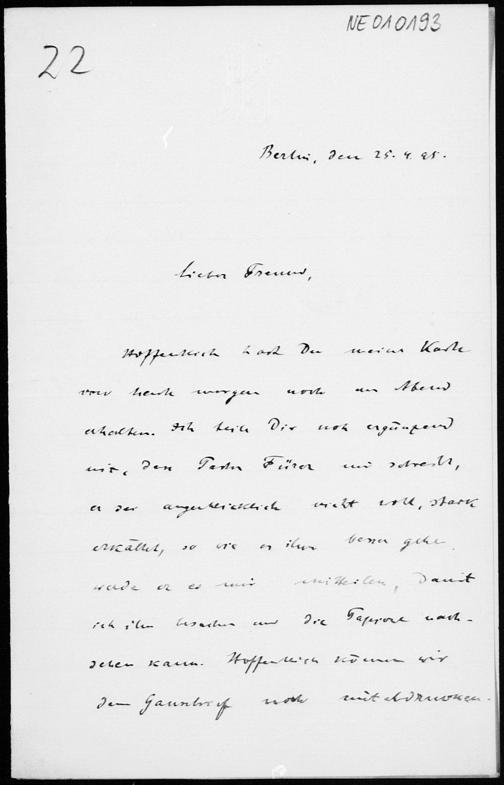 NE010193
22
Berlin, den 25. 4. 95.
Lieber Freund,
Hoffentlich hast Du meine Karte
von heute morgen noch am Abend
erhalten. Ich teile Dir noch ergänzend
mit, dass Pastor Fürer mir schreibt,
er sei augenblicklich nicht wohl, stark
erkältet, so wie es ihm besser gehe
werde er es mir mittheilen, damit
ich ihn besuchen und die Papiere nach-
sehen kann. Hoffentlich können wir
den noch mitabdrucken.